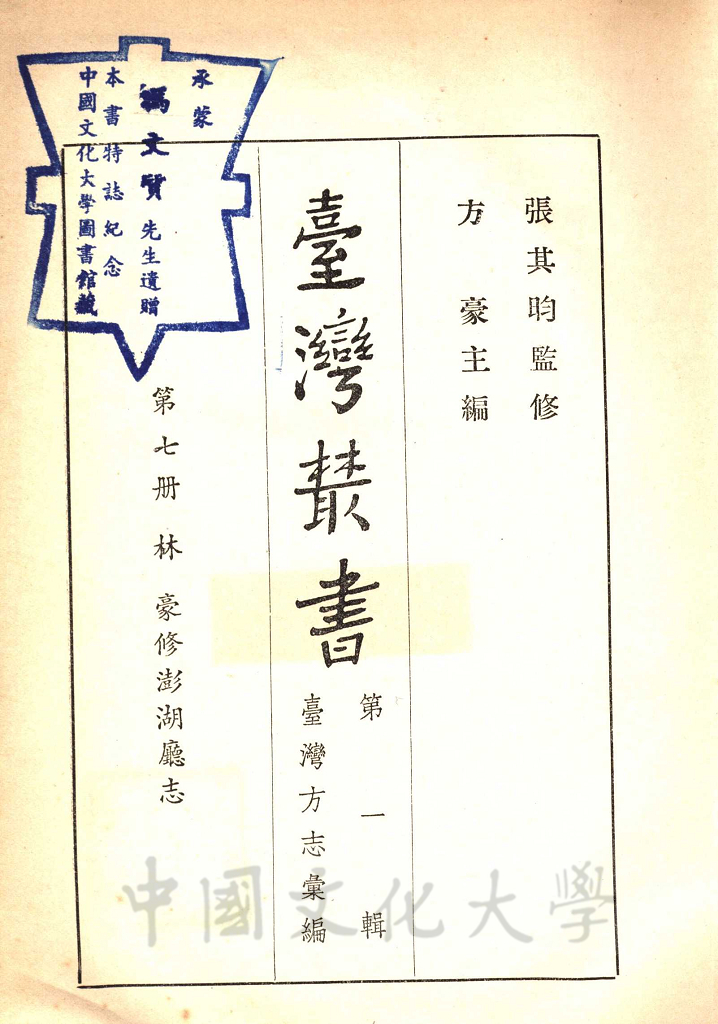 張其昀監修
方豪主編
臺灣叢書
第一輯
臺灣方志彙編
第七册 林豪修澎湖廳志
承蒙
馮文質先生遺贈
本書特誌紀念
中國文化大學圖書館藏
中國文化大學